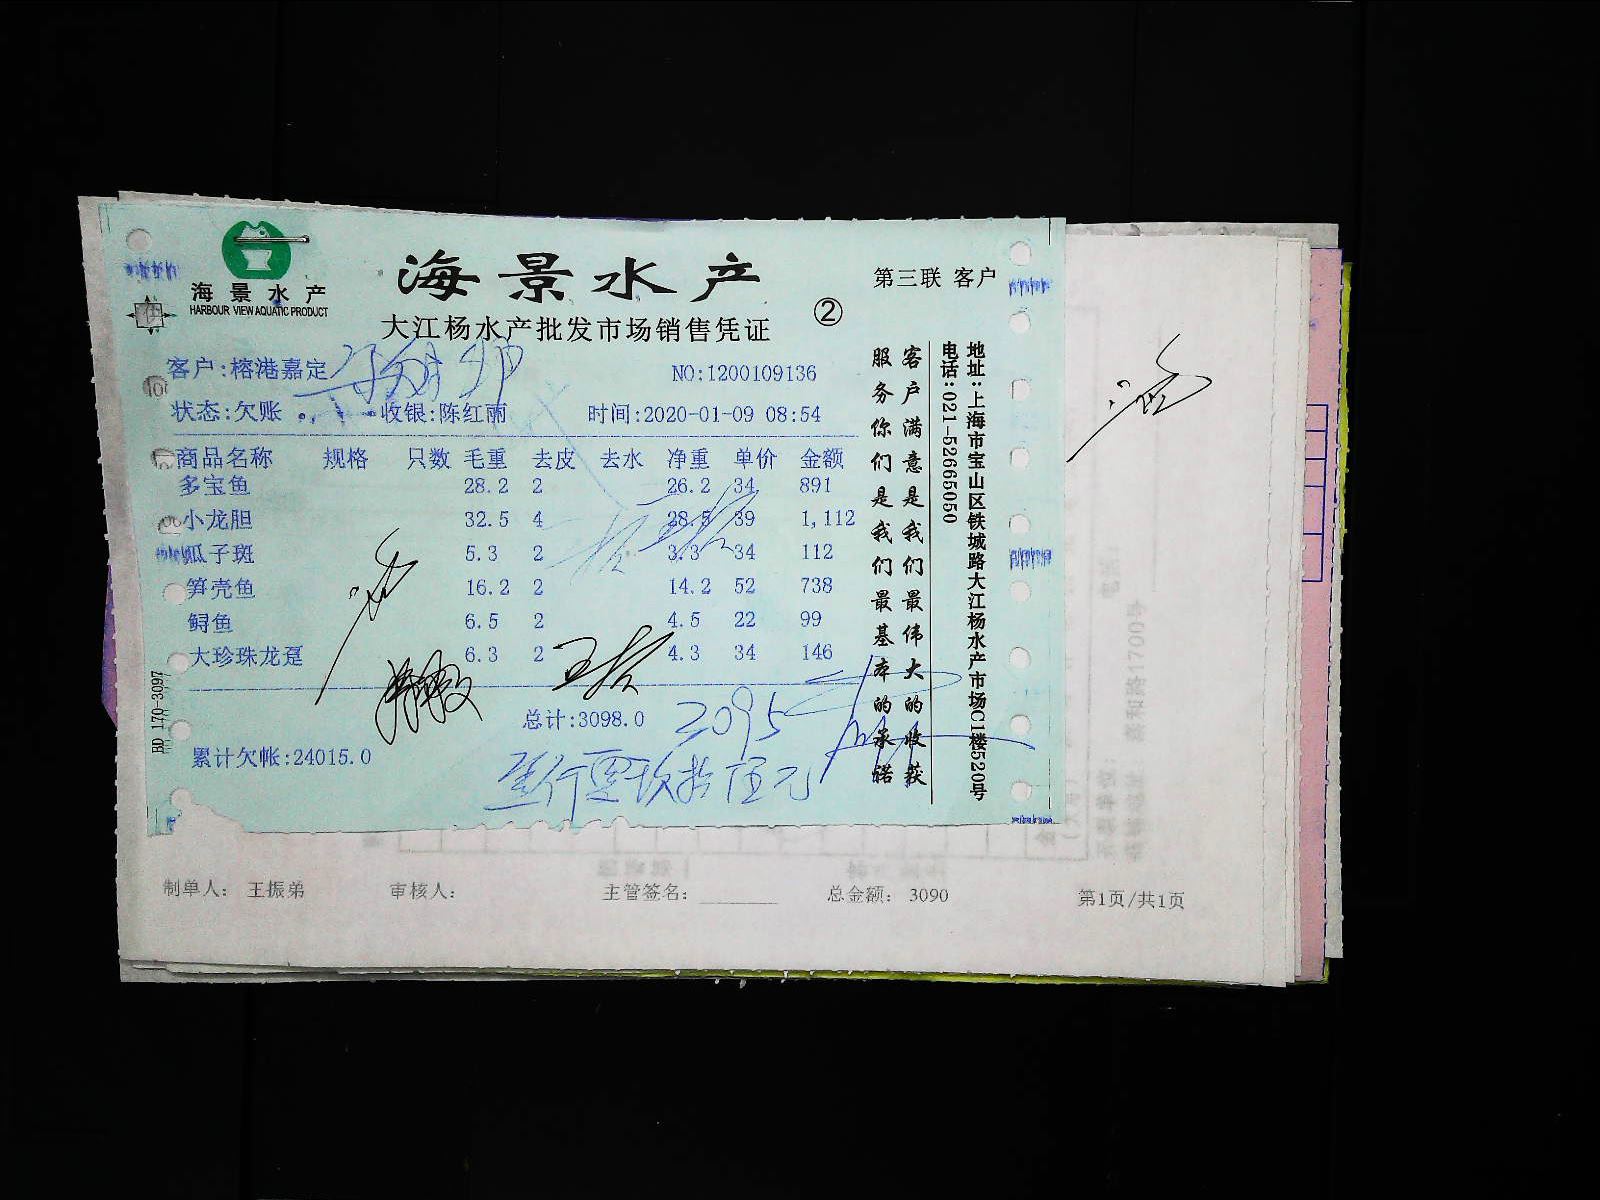 海景水产
HARBOUR VIEW AQUATIC PRODUCT
海景水产
第三联 客户
大江杨水产批发市场销售凭证
②
客户:榕港嘉定
NO:1200109136
状态:欠账
收银:陈红丽
时间:2020-01-09 08:54
商品名称 规格 只数 毛重 去皮 去水 净重 单价 金额
多宝鱼 28.2 2 26.2 34 891
小龙胆 32.5 4 28.5 39 1,112
瓜子斑 5.3 2 3.3 34 112
笋壳鱼 16.2 2 14.2 52 738
鲟鱼 6.5 2 4.5 22 99
大珍珠龙趸 6.3 2 4.3 34 146
总计:3098.0
累计欠帐:24015.0
客户满意是我们最伟大的收获
服务你们是我们最基本的承诺
地址:上海市宝山区铁城路大江杨水产市场C1楼520号
电话:021-52665050
BD 170-3097
制单人: 王振弟
审核人:
主管签名:
总金额: 3090
第1页/共1页